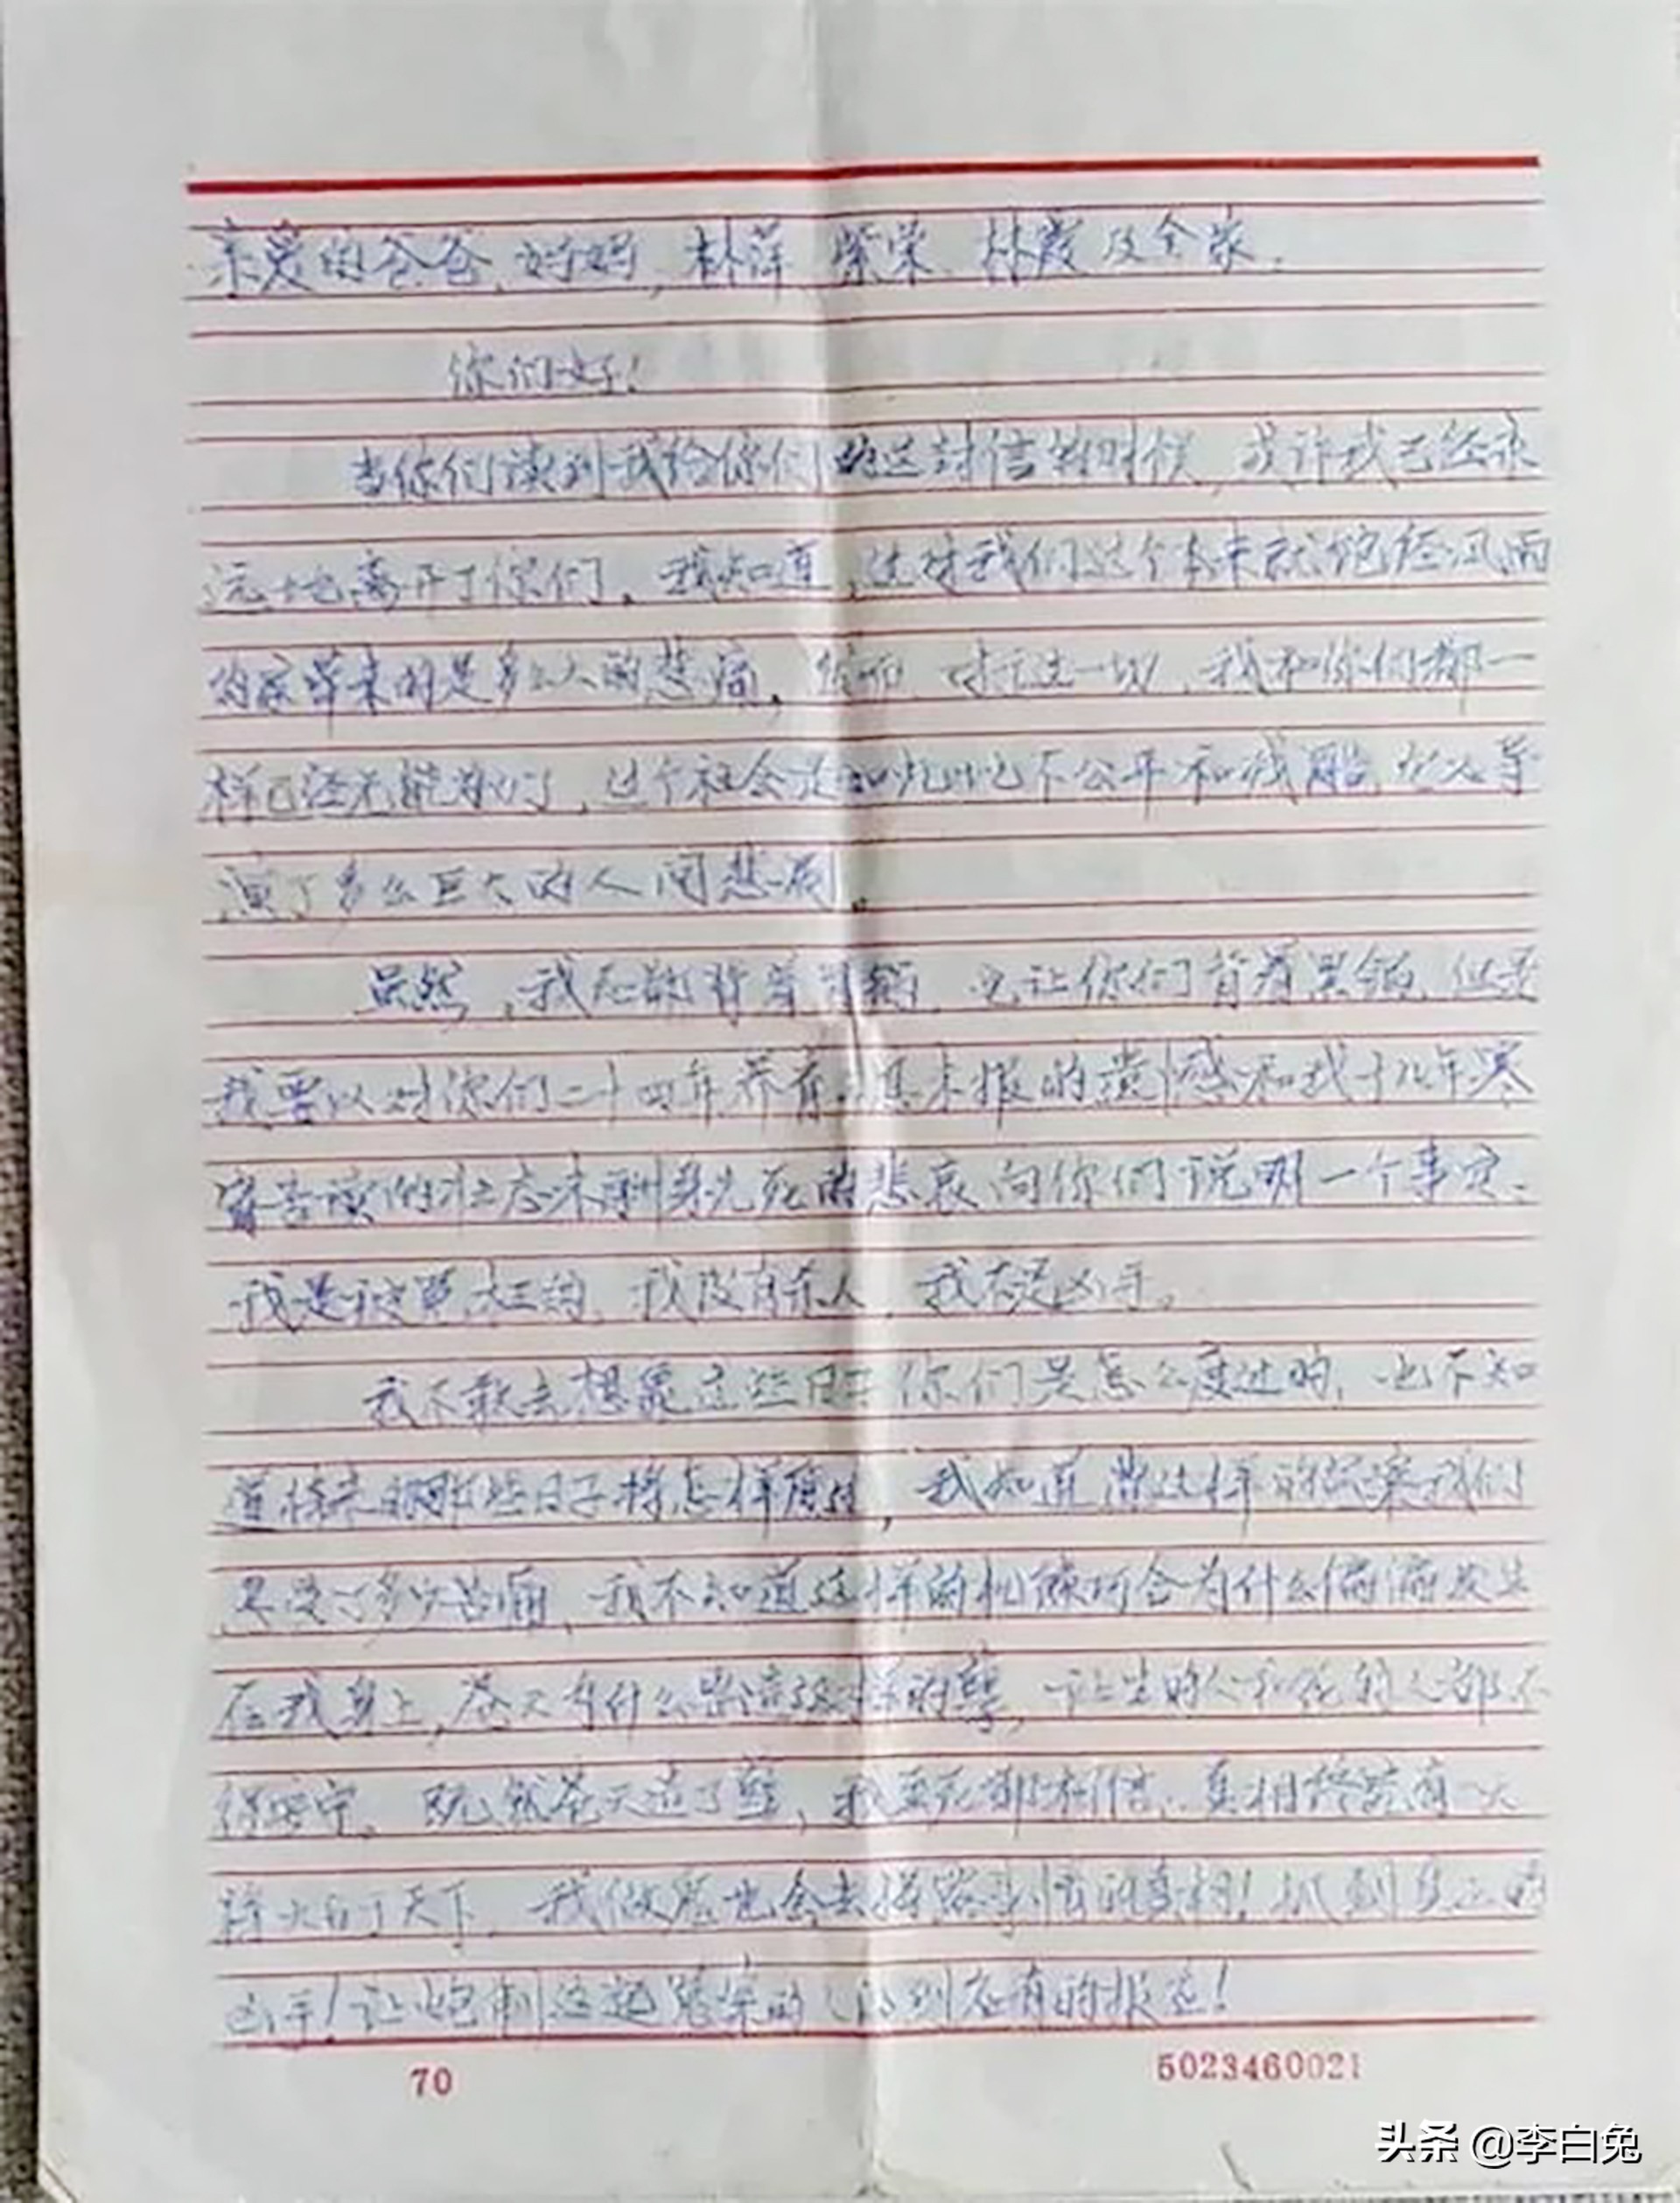 亲爱的爸爸、妈妈、林萍、紫荣、林霞及全家：
你们好！
当你们读到我给你们的这封信的时候，或许我已经永
远地离开了你们。我知道，这对我们这个本来就饱经风雨
的家带来的是多么大的悲痛，然而，对于这一切，我和你们都一
样已经无能为力了，这个社会是如此地不公平和残酷，
演了多么巨大的人间悲剧。
虽然，我无辜背着黑锅，也让你们背着黑锅，但是
我要以对你们二十四年养育之恩未报的遗憾和我十几年寒
窗苦读的壮志未酬身先死的悲哀向你们说明一个事实：
我是被冤枉的，我没有杀人，我不是凶手。
我不敢去想象这些日子你们是怎么度过的，也不知
道将来的那些日子将怎样度过，我知道
受了多少苦痛，我不知道这样的机缘巧合为什么偏偏发生
在我身上，苍天为什么要造这样的孽，让生的人和死的人都不
得安宁。既然苍天造了孽，我至死都相信，真相终究有一天
将大白于天下，我做鬼也会去探寻事情的真相！抓到真正的
凶手！让炮制这起冤案的人得到应有的报应！
70
5023460021
头条 @李白兔